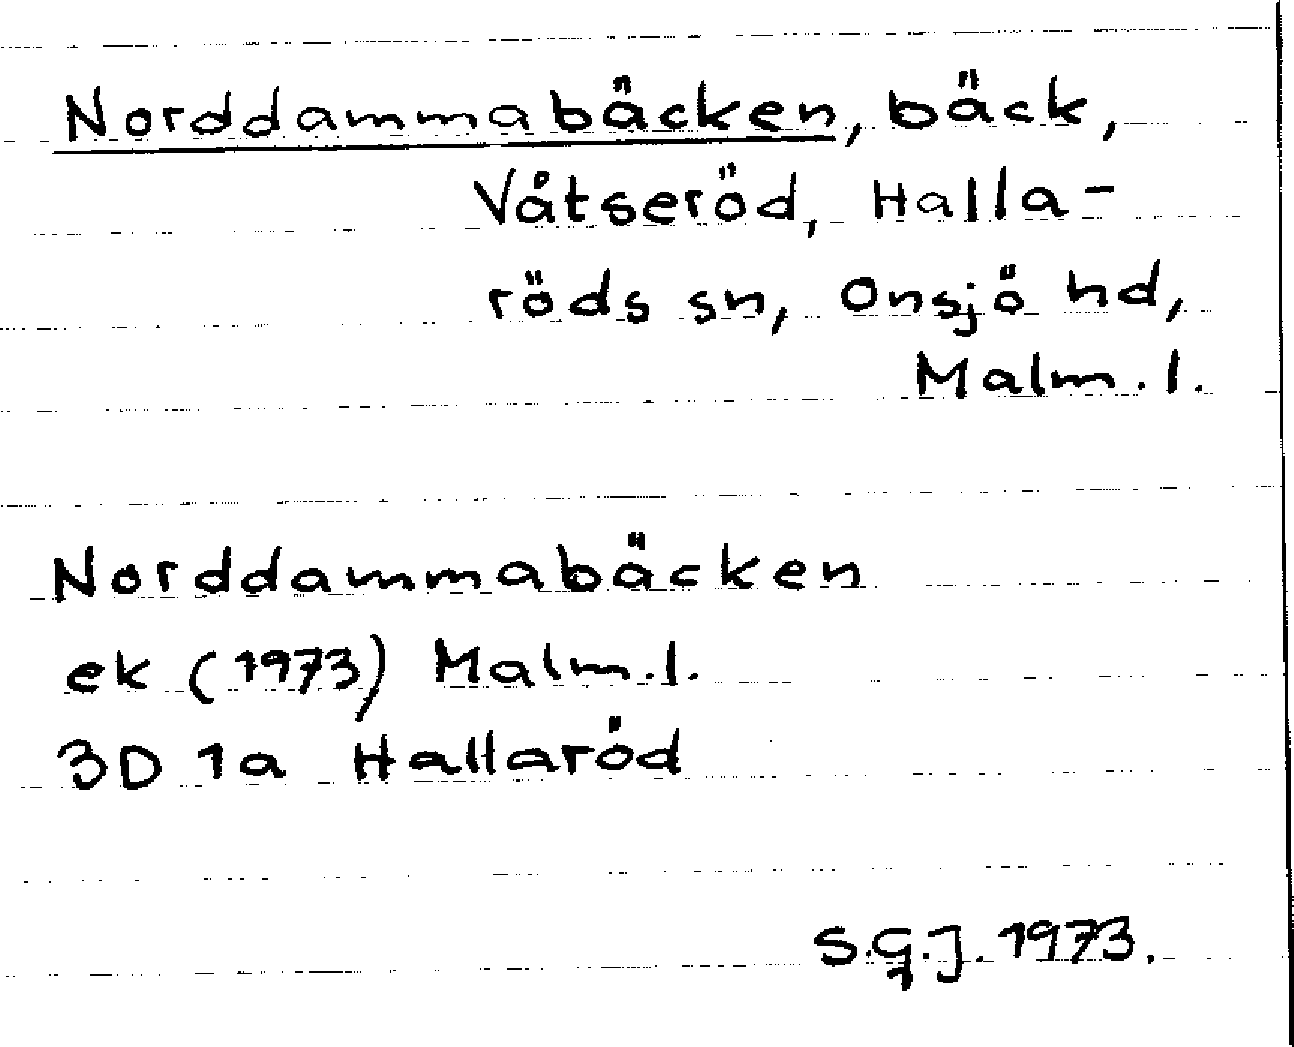 Norddammabäcken, bäck,
Våtseröd, Halla-
röds sn, Onsjö hd,
Malm.l.
Norddammabäcken
ek (1973) Malm.l.
3D 1a Hallaröd
S.G.J. 1973.